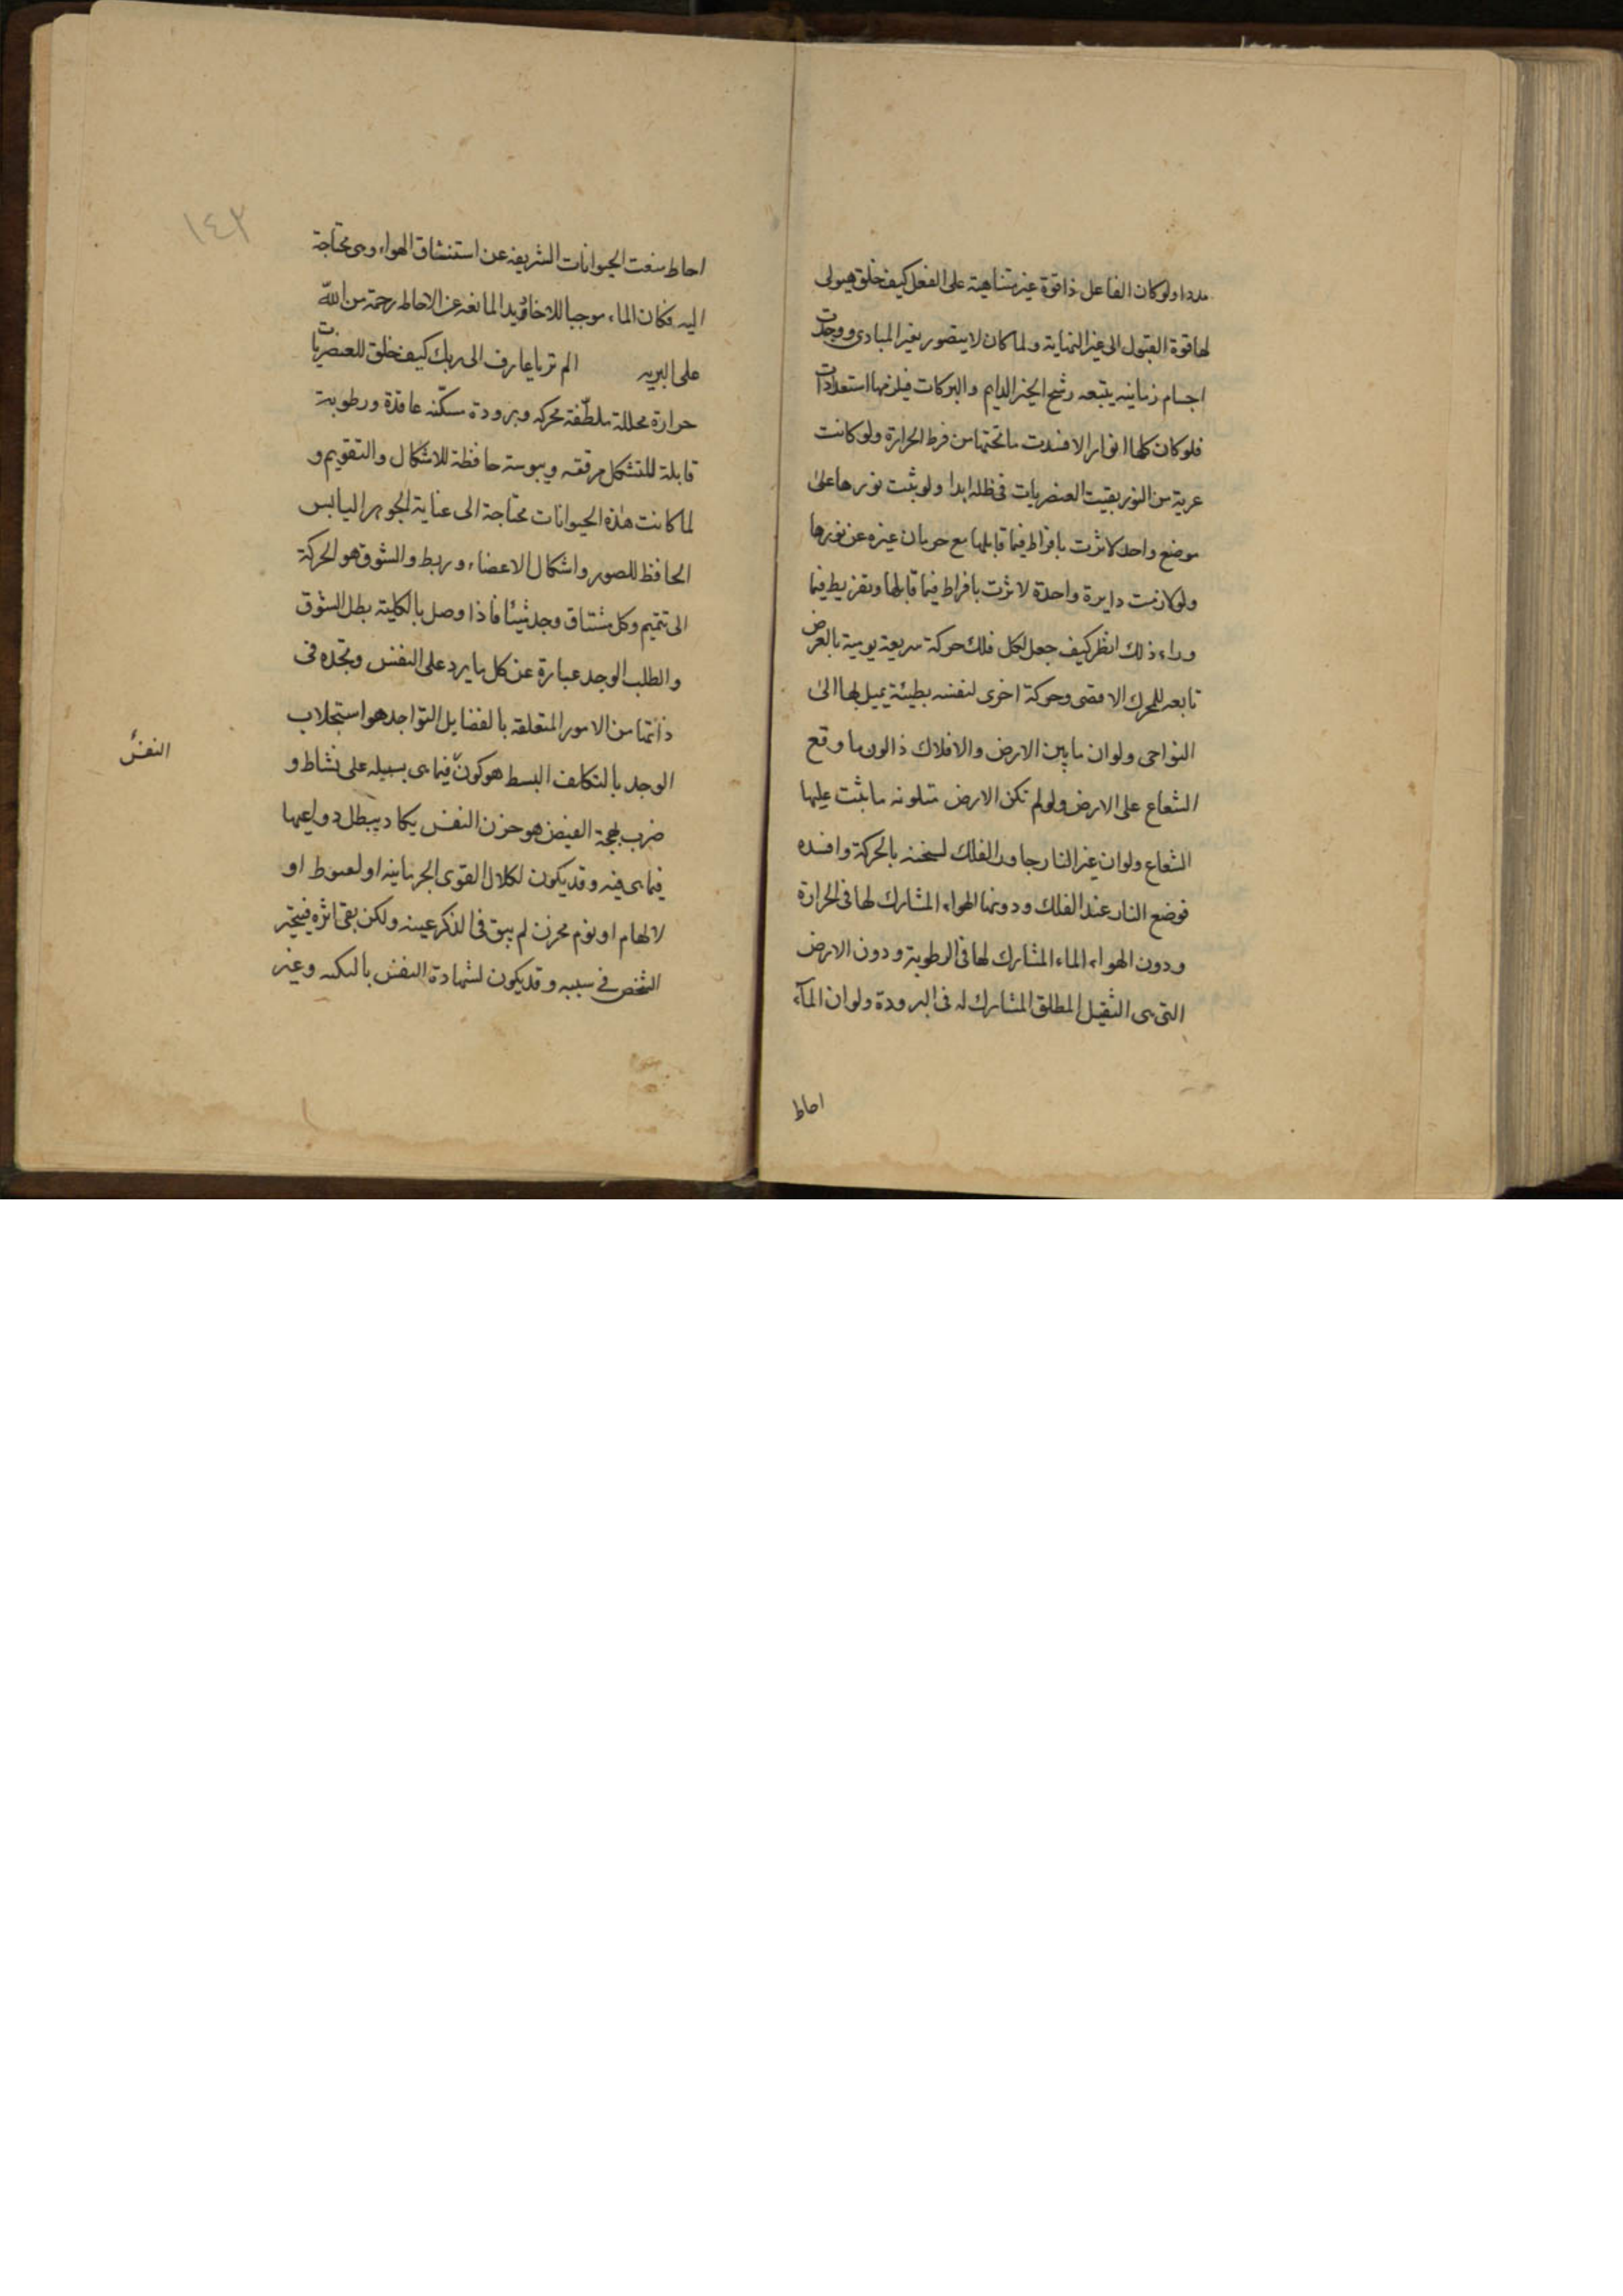 مددا ولو كان الفاعل ذا قوة غير متناهية على الفعل كيف خلق هيولى
لها قوة القبول الى غير النهاية ولما كان لا يتصور بغير المبادى ووجدت
اجسام زمانيه يتبعه رشح الخير الدايم والبركات فيلزمها استعدادات
فلو كان كلها انوارا لافسدت ما تحتها من فرط الحرارة ولو كانت
عرية من النور بقيت العنصريات فى ظله ابدا ولو ثبت نورها على
موضع واحد لاثرت بافراط فيما قابلها مع حرمان غيره عن نورها
ولو لازمت دايرة واحدة لاثرت بافراط فيما قابلها وتفريط فيما
وراء ذلك انظر كيف جعل لكل فلك حركة سريعة يومية بالعرض
تابعه للمحرك الاقصى وحركة اخرى لنفسه بطيئة يميل بها الى
النواحى ولو ان ما بين الارض والافلاك ذا لون ما وقع
الشعاع على الارض ولو لم تكن الارض متلونه ما ثبت عليها
الشعاع ولو ان غير النار جاور الفلك لسخنه بالحركة وافسده
فوضع النار عند الفلك ودونها الهواء المشارك لها فى الحرارة
ودون الهواء الماء المشارك لها فى الرطوبة ودون الارض
التى هى الثقيل المطلق المشارك له فى البرودة ولو ان الماء
احاط
١٤٣
احاط منعت الحيوانات الشريفه عن استنشاق الهواء وهى محتاجة
اليه فكان الماء موجبا للاخاديد المانعه عن الاحاطه رحمة من الله
على البريه الم تر يا عارف الى ربك كيف خلق للعنصريات
حرارة محللة ملطّفة محركه وبرودة مسكّنه عاقدة ورطوبة
قابلة للتشكل مرققه ويبوسة حافظة للاشكال والتقويم و
لما كانت هذه الحيوانات محتاجة الى عناية الجوهر اليابس
الحافظ للصور واشكال الاعضاء وربط والشوق هو الحركة
الى تتميم وكل مشتاق وجد شيئا فاذا وصل بالكلية بطل الشوق
والطلب الوجد عبارة عن كل ما يرد على النفس وتجده فى
ذاتها من الامور المتعلقه بالفضايل التواجد هو استجلاب
الوجد بالتكلف البسط هو كون فيما هى بسبيله على نشاط و
النفس
ضرب بهجة القبض هو حزن النفس يكاد يبطل دواعيها
فيما هى فيه وقد يكون لكلال القوى الجرمانيه او لهبوط او
لالهام او نوم محزن لم يبق فى الذكر عينه ولكن بقى اثره فيتحير
الشخص فى سببه وقد يكون لشهادة النفس وغير